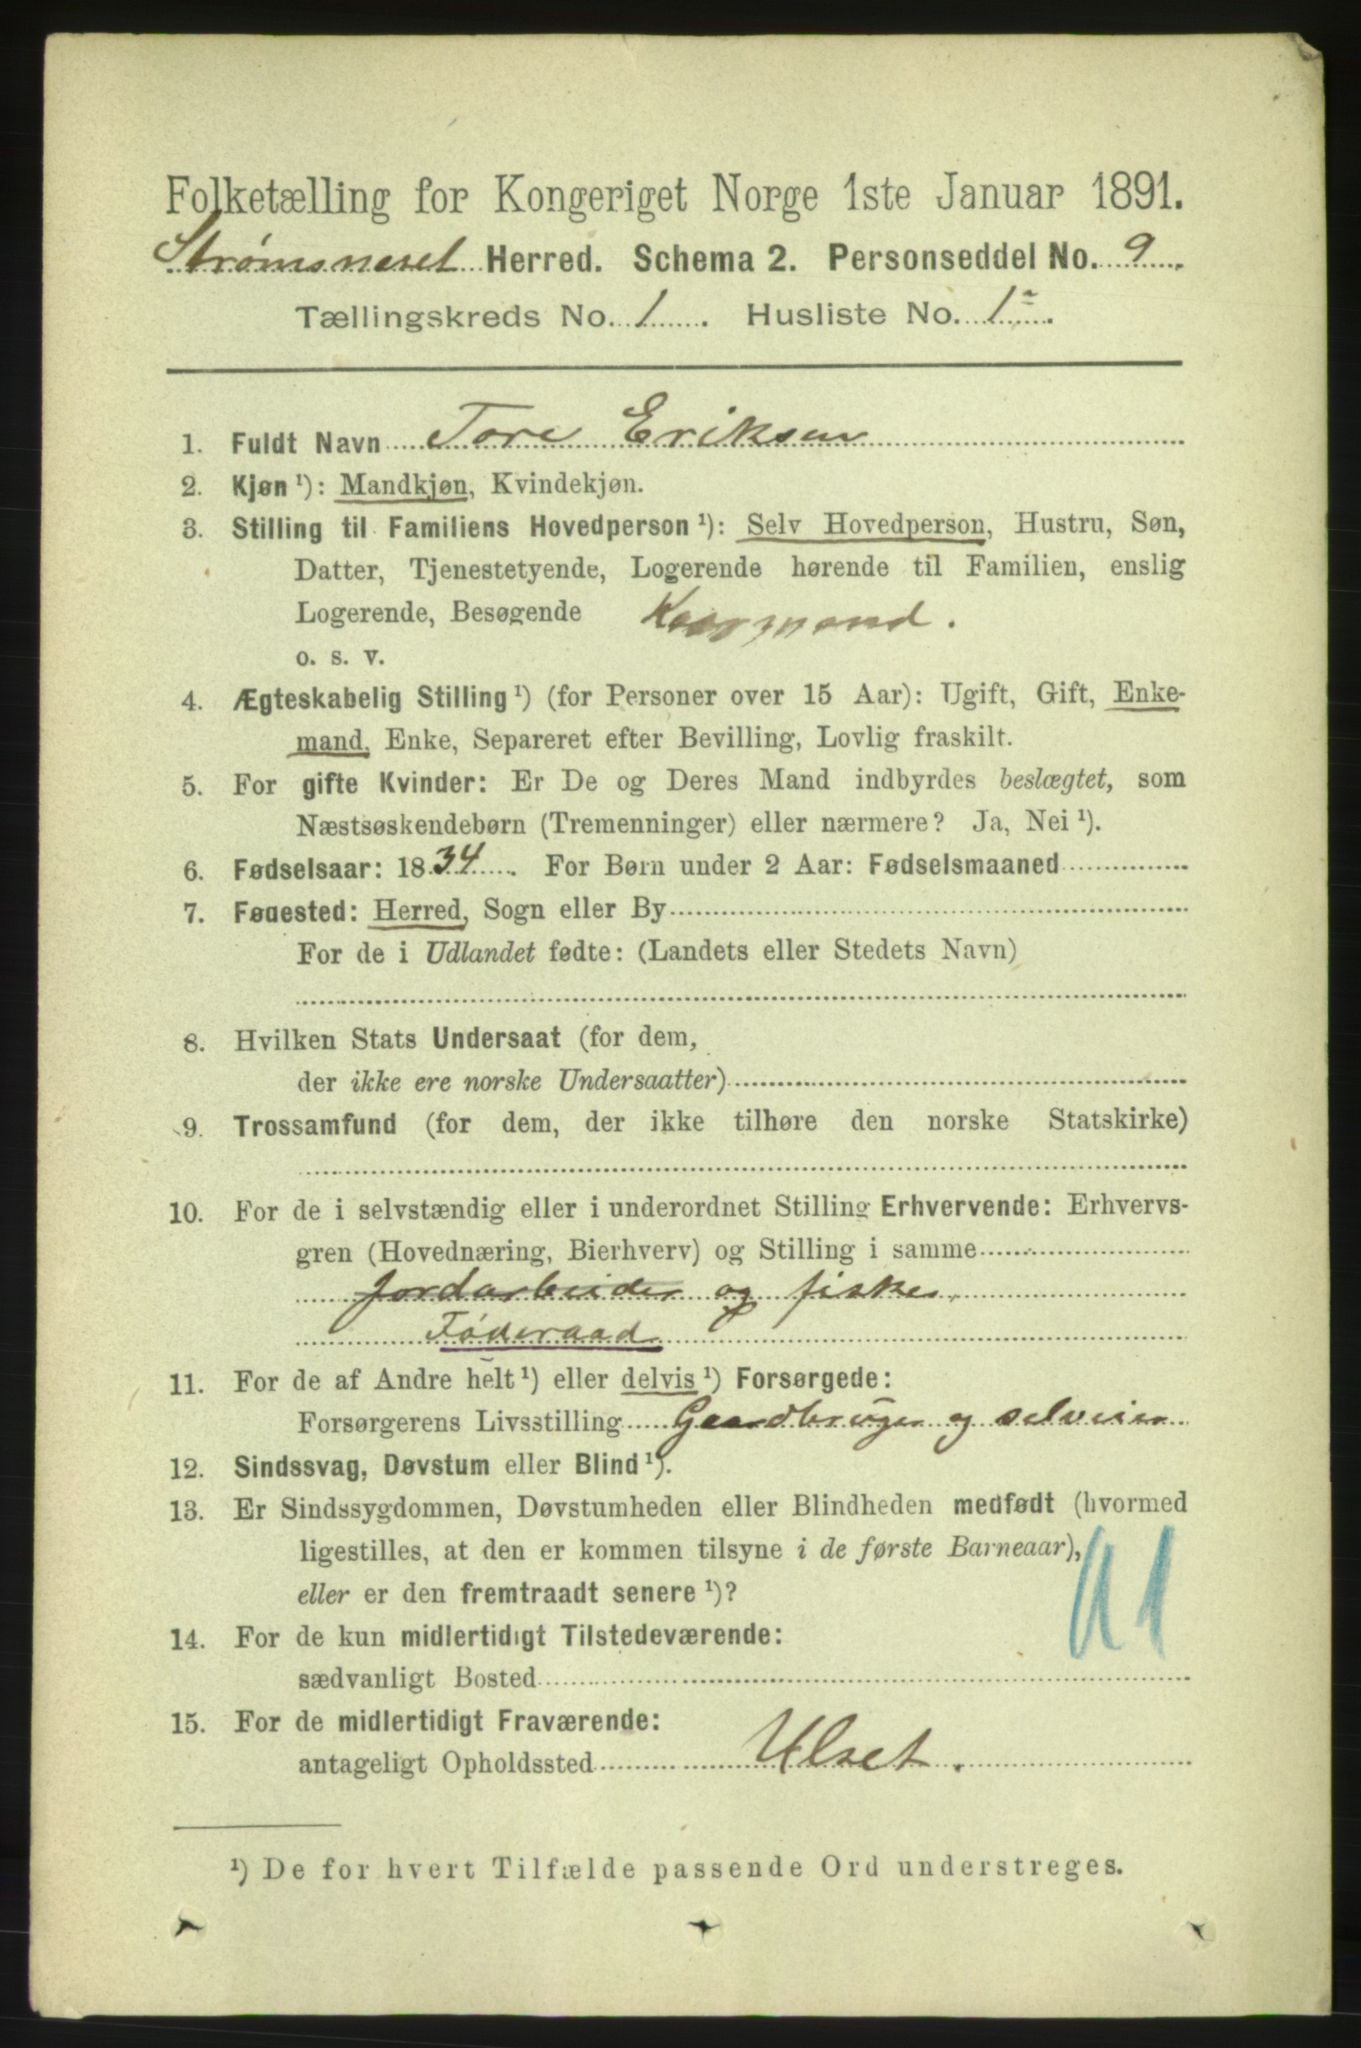 Folketælling for Kongeriget Norge 1ste Januar 1891.
Strømsneset Herred. Schema 2. Personseddel No. 9
Tællingskreds No. 1. Husliste No. 1
1. Fuldt Navn Tore Eriksen
2. Kjøn ¹): Mandkjøn, Kvindekjøn.
3. Stilling til Familiens Hovedperson ¹): Selv Hovedperson, Hustru, Søn,
Datter, Tjenestetyende, Logerende hørende til Familien, enslig
Logerende, Besøgende Kaarmand.
o. s. v.
4. Ægteskabelig Stilling ¹) (for Personer over 15 Aar): Ugift, Gift, Enke-
mand, Enke, Separeret efter Bevilling, Lovlig fraskilt.
5. For gifte Kvinder: Er De og Deres Mand indbyrdes beslægtet, som
Næstsøskendebørn (Tremenninger) eller nærmere? Ja, Nei ¹).
6. Fødselsaar: 1834. For Børn under 2 Aar: Fødselsmaaned
7. Fødested: Herred, Sogn eller By
For de i Udlandet fødte: (Landets eller Stedets Navn)
8. Hvilken Stats Undersaat (for dem,
der ikke ere norske Undersaatter)
9. Trossamfund (for dem, der ikke tilhøre den norske Statskirke)
10. For de i selvstændig eller i underordnet Stilling Erhvervende: Erhvervs-
gren (Hovednæring, Bierhverv) og Stilling i samme
Jordarbeider og fisker
Føderaad
11. For de af Andre helt ¹) eller delvis ¹) Forsørgede:
Forsørgerens Livsstilling Gaardbruger og selveier
12. Sindssvag, Døvstum eller Blind ¹).
13. Er Sindssygdommen, Døvstumheden eller Blindheden medfødt (hvormed
ligestilles, at den er kommen tilsyne i de første Barneaar),
eller er den fremtraadt senere ¹)?
14. For de kun midlertidigt Tilstedeværende:
sædvanligt Bosted
15. For de midlertidigt Fraværende:
antageligt Opholdssted Ulset.
¹) De for hvert Tilfælde passende Ord understreges.